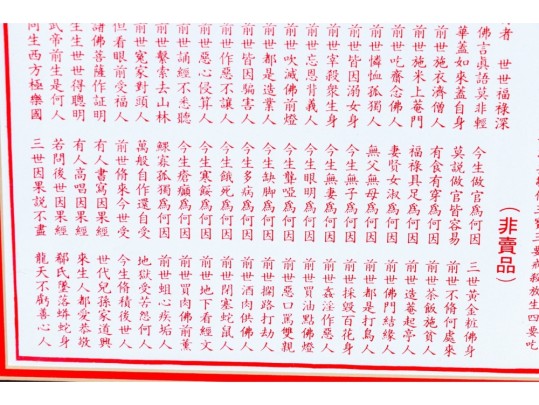 修三寶三要戒殺放生四要吃
（非賣品）
者 世世福祿深
佛言真語莫非輕
華蓋如來蓋自身
前世施衣濟僧人
前世施米上菴門
前世吃齋念佛人
前世憐恤孤獨人
前世皆因溺女身
前世宰殺衆生身
前世忘恩背義人
前世吹滅佛前燈
前世都是造業人
前世皆因騙害人
前世作惡不讓人
前世惡心侵算人
前世誦經不悉聽
前世繫索去山林
前世冤家對頭人
但看眼前受福人
諸佛菩薩作証明
生生世世得聰明
武帝前生是何人
生西方極樂國
今生做官為何因
莫說做官皆容易
有食有穿為何因
福祿具足為何因
妻賢女淑為何因
無父無母為何因
今生無子為何因
今生無妻為何因
今生眼明為何因
今生聾啞為何因
今生缺脚為何因
今生多病為何因
今生餓死為何因
今生寒餒為何因
今生瘡癲為何因
鰥寡孤獨為何因
萬般自作還自受
前世脩來今世受
有人書寫因果經
有人高唱因果經
若問後世因果經
三世因果說不盡
三世黃金粧佛身
前世不脩何處來
前世茶飯施貧人
前世造菴起亭人
前世佛門結緣人
前世都是打鳥人
前世採毀百花身
前世姦淫作惡人
前世買油點佛燈
前世惡口罵雙親
前世攔路打劫人
前世酒肉供佛人
前世閉塞蛇鼠人
前世地下看經文
前世買肉佛前薰
前世蛆心疾垢人
地獄受苦怨何人
今生脩積後世人
世代兒孫家道興
來生人都愛恭敬
郗氏墮落蟒蛇身
龍天不虧善心人